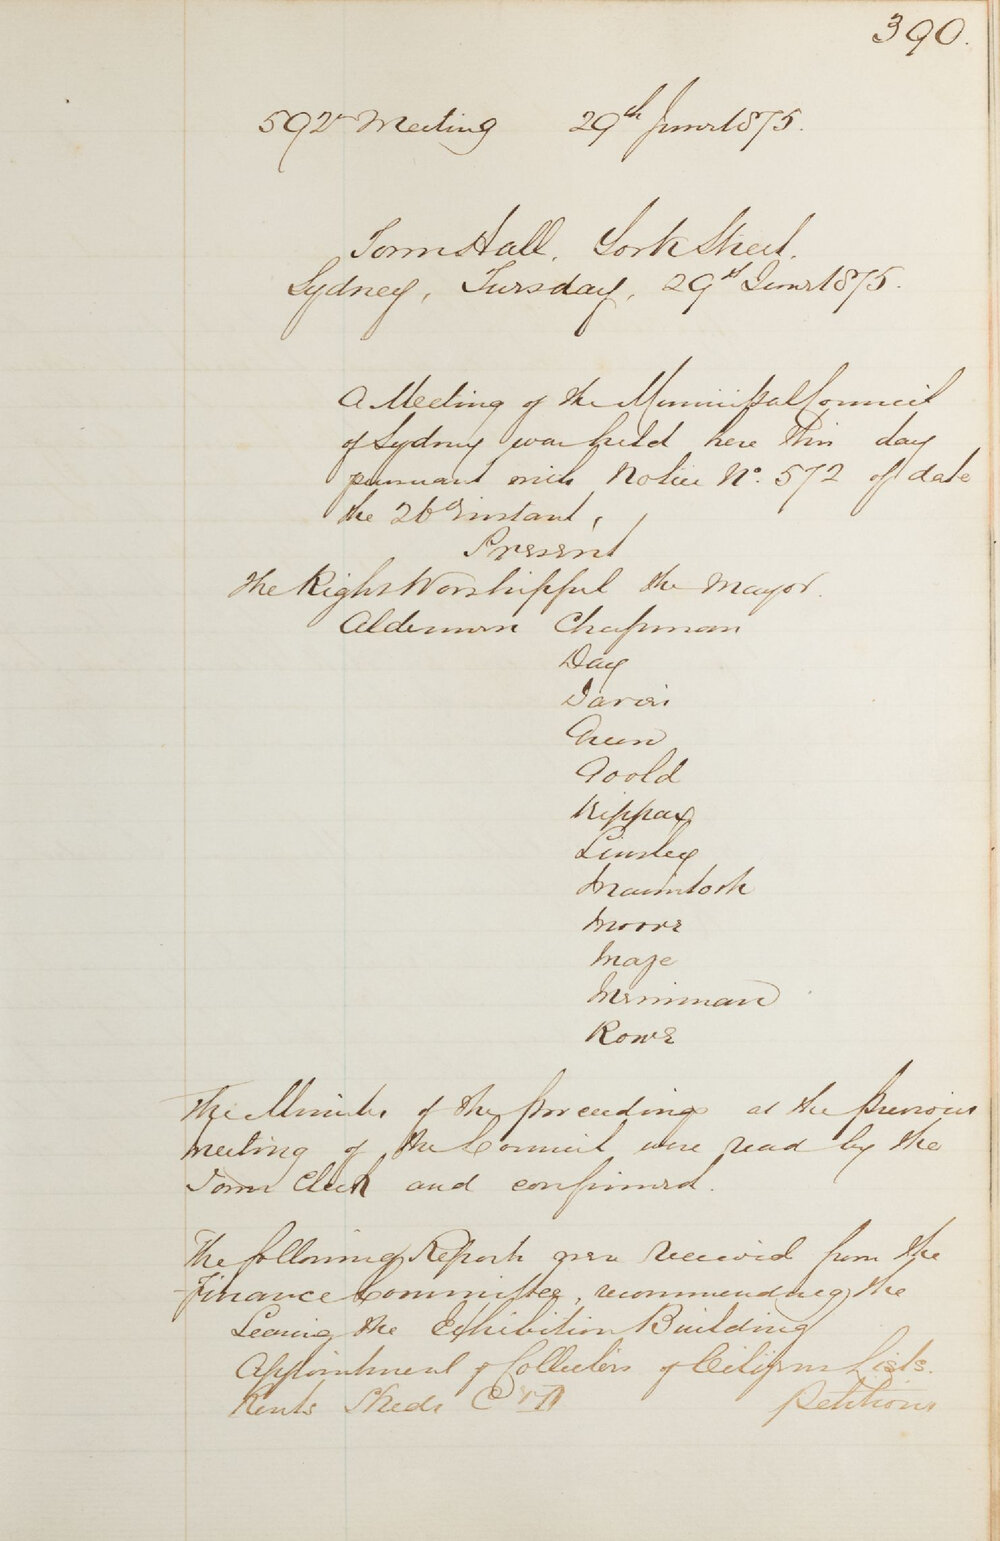 390.
592nd Meeting 29th June 1875.
Town Hall, York Street,
Sydney, Tuesday, 29th June 1875.
A Meeting of the Municipal Council
of Sydney was held here this day
pursuant with Notice No. 572 of date
the 26th instant,
Present
The Right Worshipful the Mayor.
Aldermen Chapman
Day
Davies
Green
Goold
Kippax
Linsley
Macintosh
Moore
Maze
Merriman
Rowe
The Minutes of the proceedings at the previous
meeting of the Council were read by the
Town Clerk and confirmed.
The following Reports were received from the
Finance Committee, recommending the
Leasing the Exhibition Building
Appointment of Collectors of Citizens Lists.
Rents Sheds C & D
Petitions